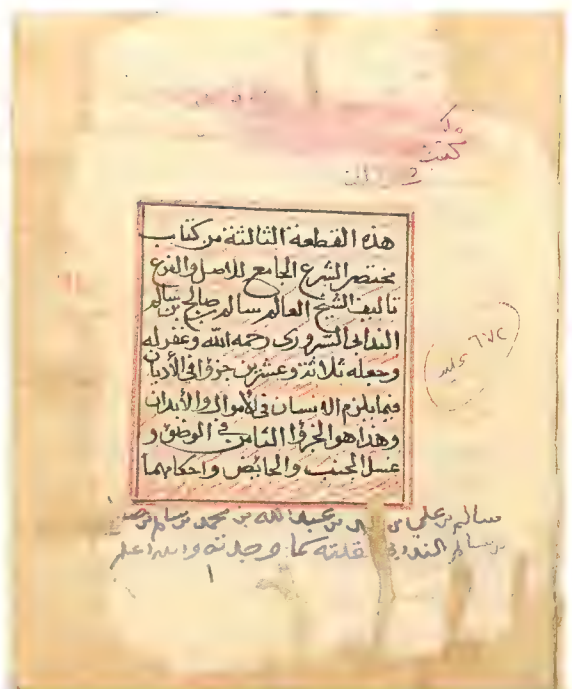 مكتبة
هذه القطعة الثالثة من كتاب
مختصر الشرع الجامع للاصل والفرع
تاليف الشيخ العالم سالم صالح بن سالم
السروري رحمه الله وغفر له
وجعله ثلاثة وعشرين جزؤا في الأديان
فيما يلزم الانسان في الأموال والأبدان
وهذا هو الجزؤ الثامن في الوضوء و
غسل الجنب والحائض واحكامهما
٦٧٢
سالم بن علي بن بن عبد الله بن محمد بن سالم بن
بن سالم نقلته كما وجدته والله اعلم